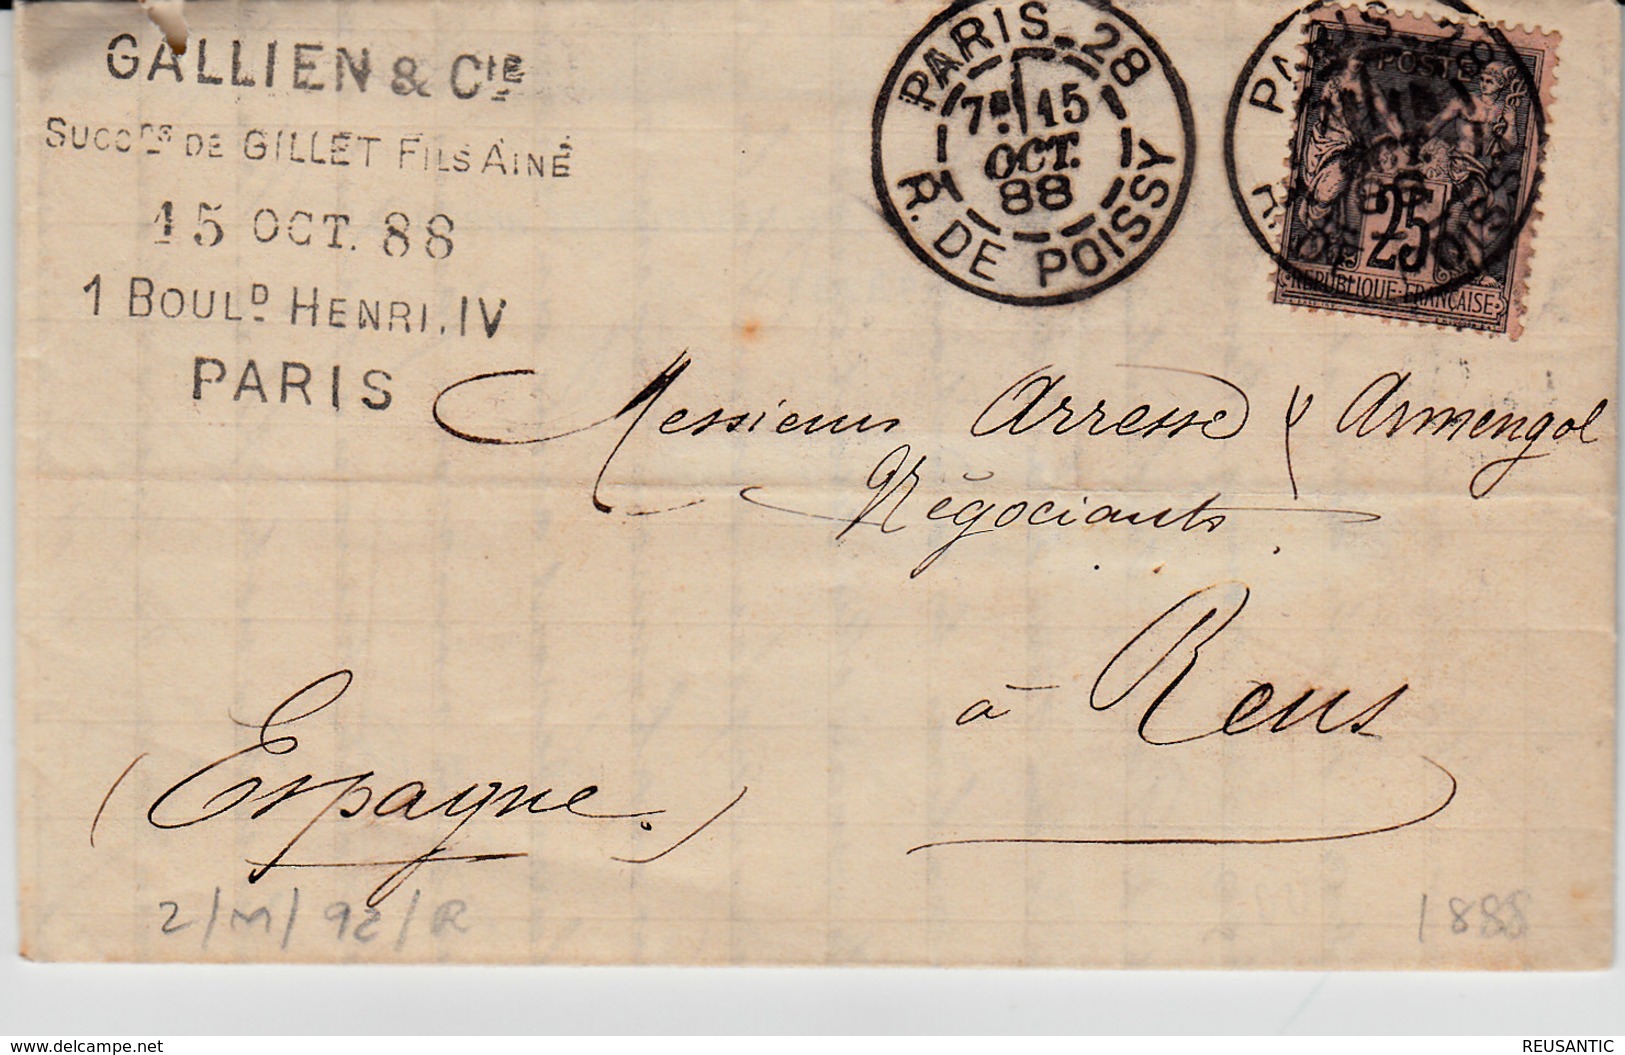 GALLIEN & CIE
SUCCRS DE GILLET FILS AINÉ
15 OCT. 88
1 BOULD HENRI. IV
PARIS
PARIS_28
7E 15
OCT.
88
R. DE POISSY
PARIS_28
OCT.
88
R. DE POISSY
POSTE
25
REPUBLIQUE FRANCAISE
Messieurs Arresse & Armengol
Négociants
à Reus
(Espagne.)
2/M/92/R
1888
www.delcampe.net
REUSANTIC